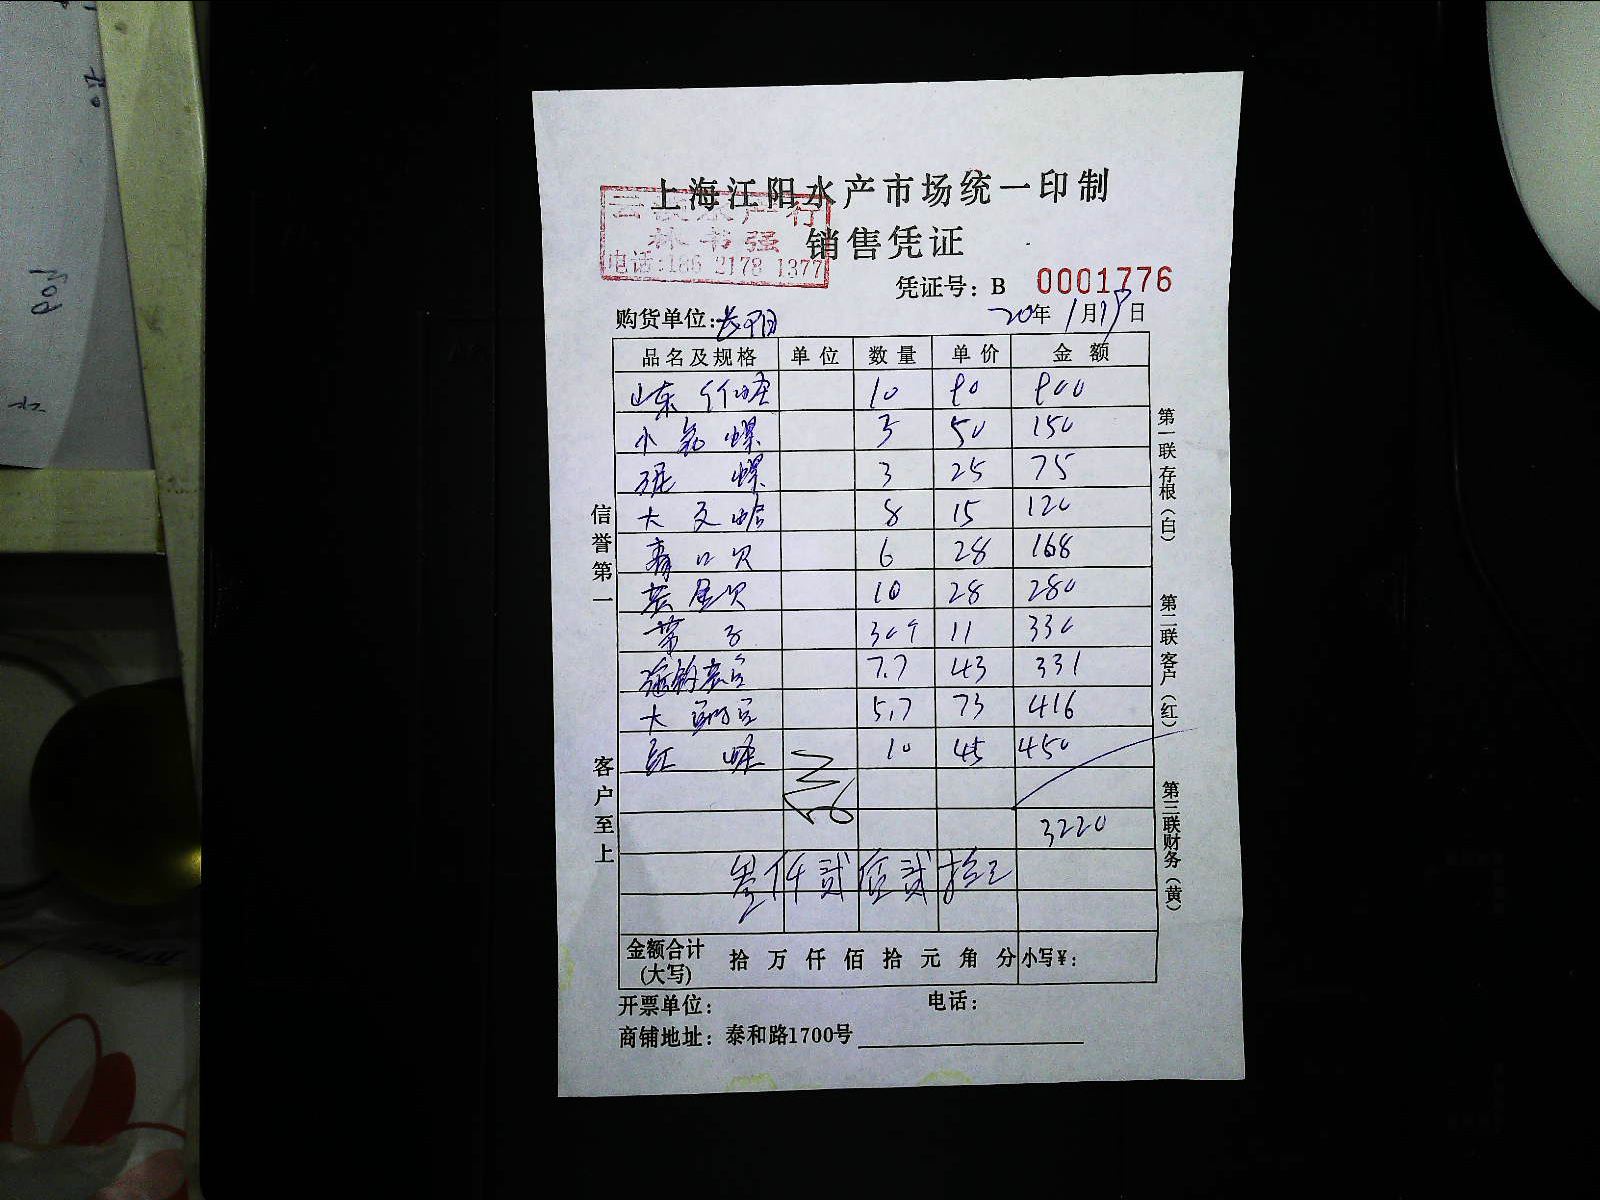 上海江阳水产市场统一印制
水产行
林书强
电话:186 2178 1377
销售凭证
凭证号: B 0001776
购货单位:
20年1月19日
品名及规格 单位 数量 单价 金额
山东 10 90 900
小 螺 3 50 150
泥 螺 3 25 75
大 文蛤 8 15 120
青口贝 6 28 168
10 28 280
带子 30个 11 330
7.7 43 331
大 5.7 73 416
红 10 45 450
3220
叁仟贰佰贰拾元
金额合计(大写) 拾 万 仟 佰 拾 元 角 分 小写¥:
开票单位: 电话:
商铺地址: 泰和路1700号
信誉第一
客户至上
第一联存根(白)
第二联客户(红)
第三联财务(黄)